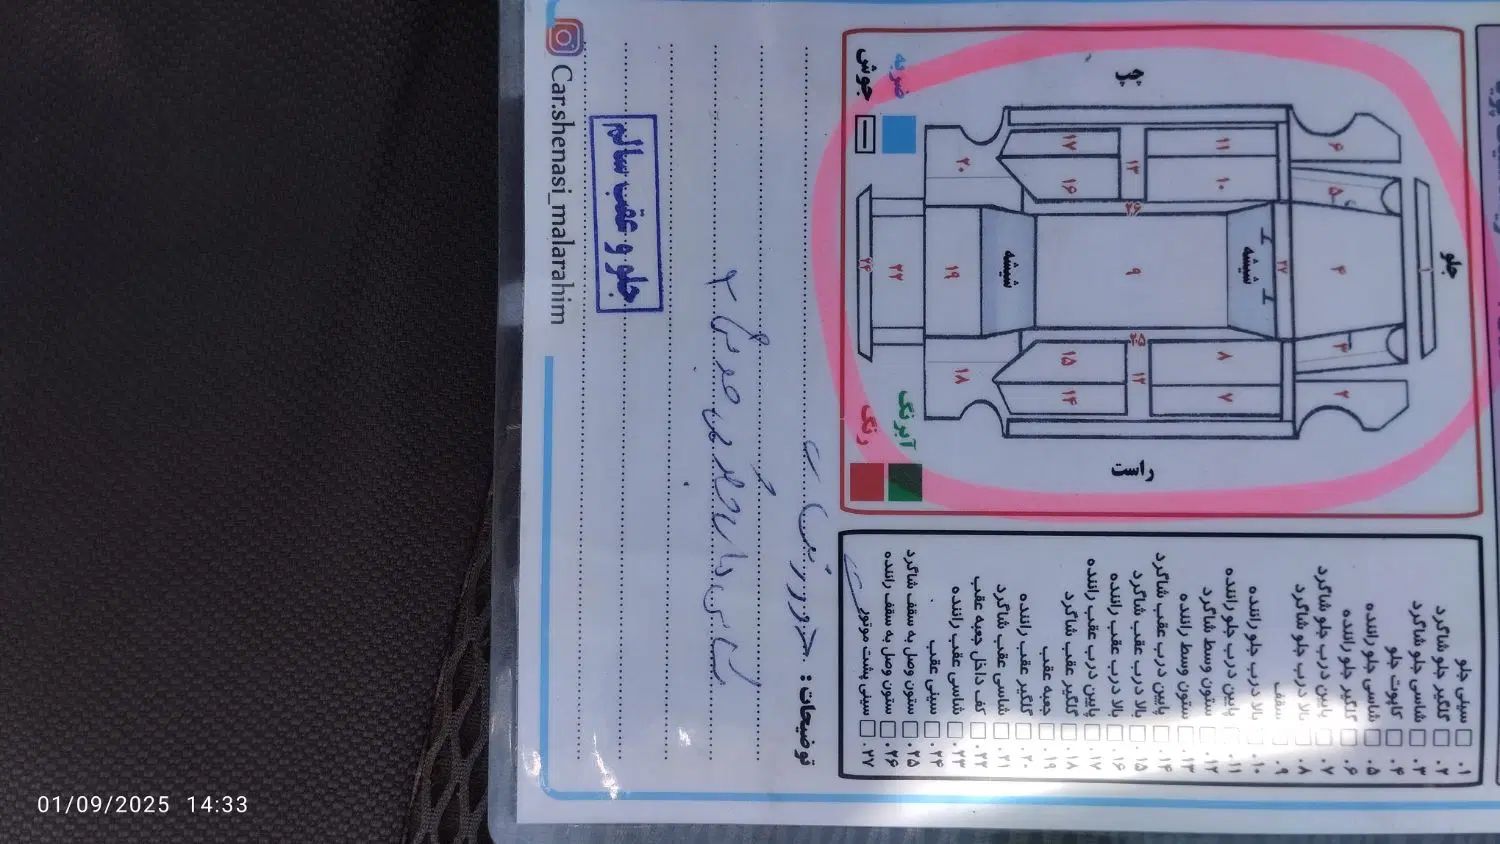 جلو
چپ
راست
۱
۲
۳
۴
۵
۶
۷
۸
۹
شیشه
۲۷
۱۰
۱۱
۱۲
۱۳
۲۵
۲۶
۱۴
۱۵
۱۶
۱۷
شیشه
۱۸
۱۹
۲۰
۲۲
۲۴
ضربه
جوش
آبرنگ
رنگ
۱. سینی جلو
۲. گلگیر جلو شاگرد
۳. شاسی جلو شاگرد
۴. کاپوت جلو
۵. شاسی جلو راننده
۶. گلگیر جلو راننده
۷. پایین درب جلو شاگرد
۸. بالا درب جلو شاگرد
۹. سقف
۱۰. بالا درب جلو راننده
۱۱. پایین درب جلو راننده
۱۲. ستون وسط شاگرد
۱۳. ستون وسط راننده
۱۴. پایین درب عقب شاگرد
۱۵. بالا درب عقب شاگرد
۱۶. بالا درب عقب راننده
۱۷. پایین درب عقب راننده
۱۸. گلگیر عقب شاگرد
۱۹. جعبه عقب
۲۰. گلگیر عقب راننده
۲۱. شاسی عقب شاگرد
۲۲. کف داخل جعبه عقب
۲۳. شاسی عقب راننده
۲۴. سینی عقب
۲۵. ستون وصل به سقف شاگرد
۲۶. ستون وصل به سقف راننده
۲۷. سینی پشت موتور
توضیحات :
جلو و عقب سالم
Car.shenasi_malarahim
01/09/2025 14:33